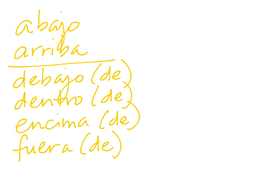 abajo
arriba
debajo (de)
dentro (de)
encima (de)
fuera (de)